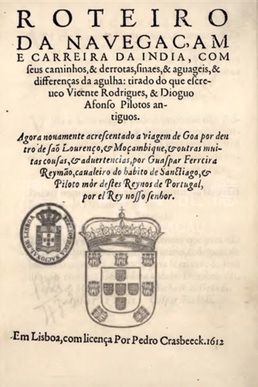 ROTEIRO
DA NAVEGAC,AM
E CARREIRA DA INDIA, COM
seus caminhos, & derrotas, sinaes, & aguageis, &
differenças da agulha: tirado do que escre-
ueo Vicente Rodrigues, & Dioguo
Afonso Pilotos an-
tiguos.
Agora nouamente acrescentado a viagem de Goa por den
tro de saõ Lourenço, & Moçambique, & outras mui-
tas cousas, & aduertencias, por Guaspar Ferreira
Reymão, caualeiro do habito de Sanctiago, &
Piloto mór destes Reynos de Portugal,
por el Rey nosso senhor.
Em Lisboa, com licença Por Pedro Crasbeeck. 1612